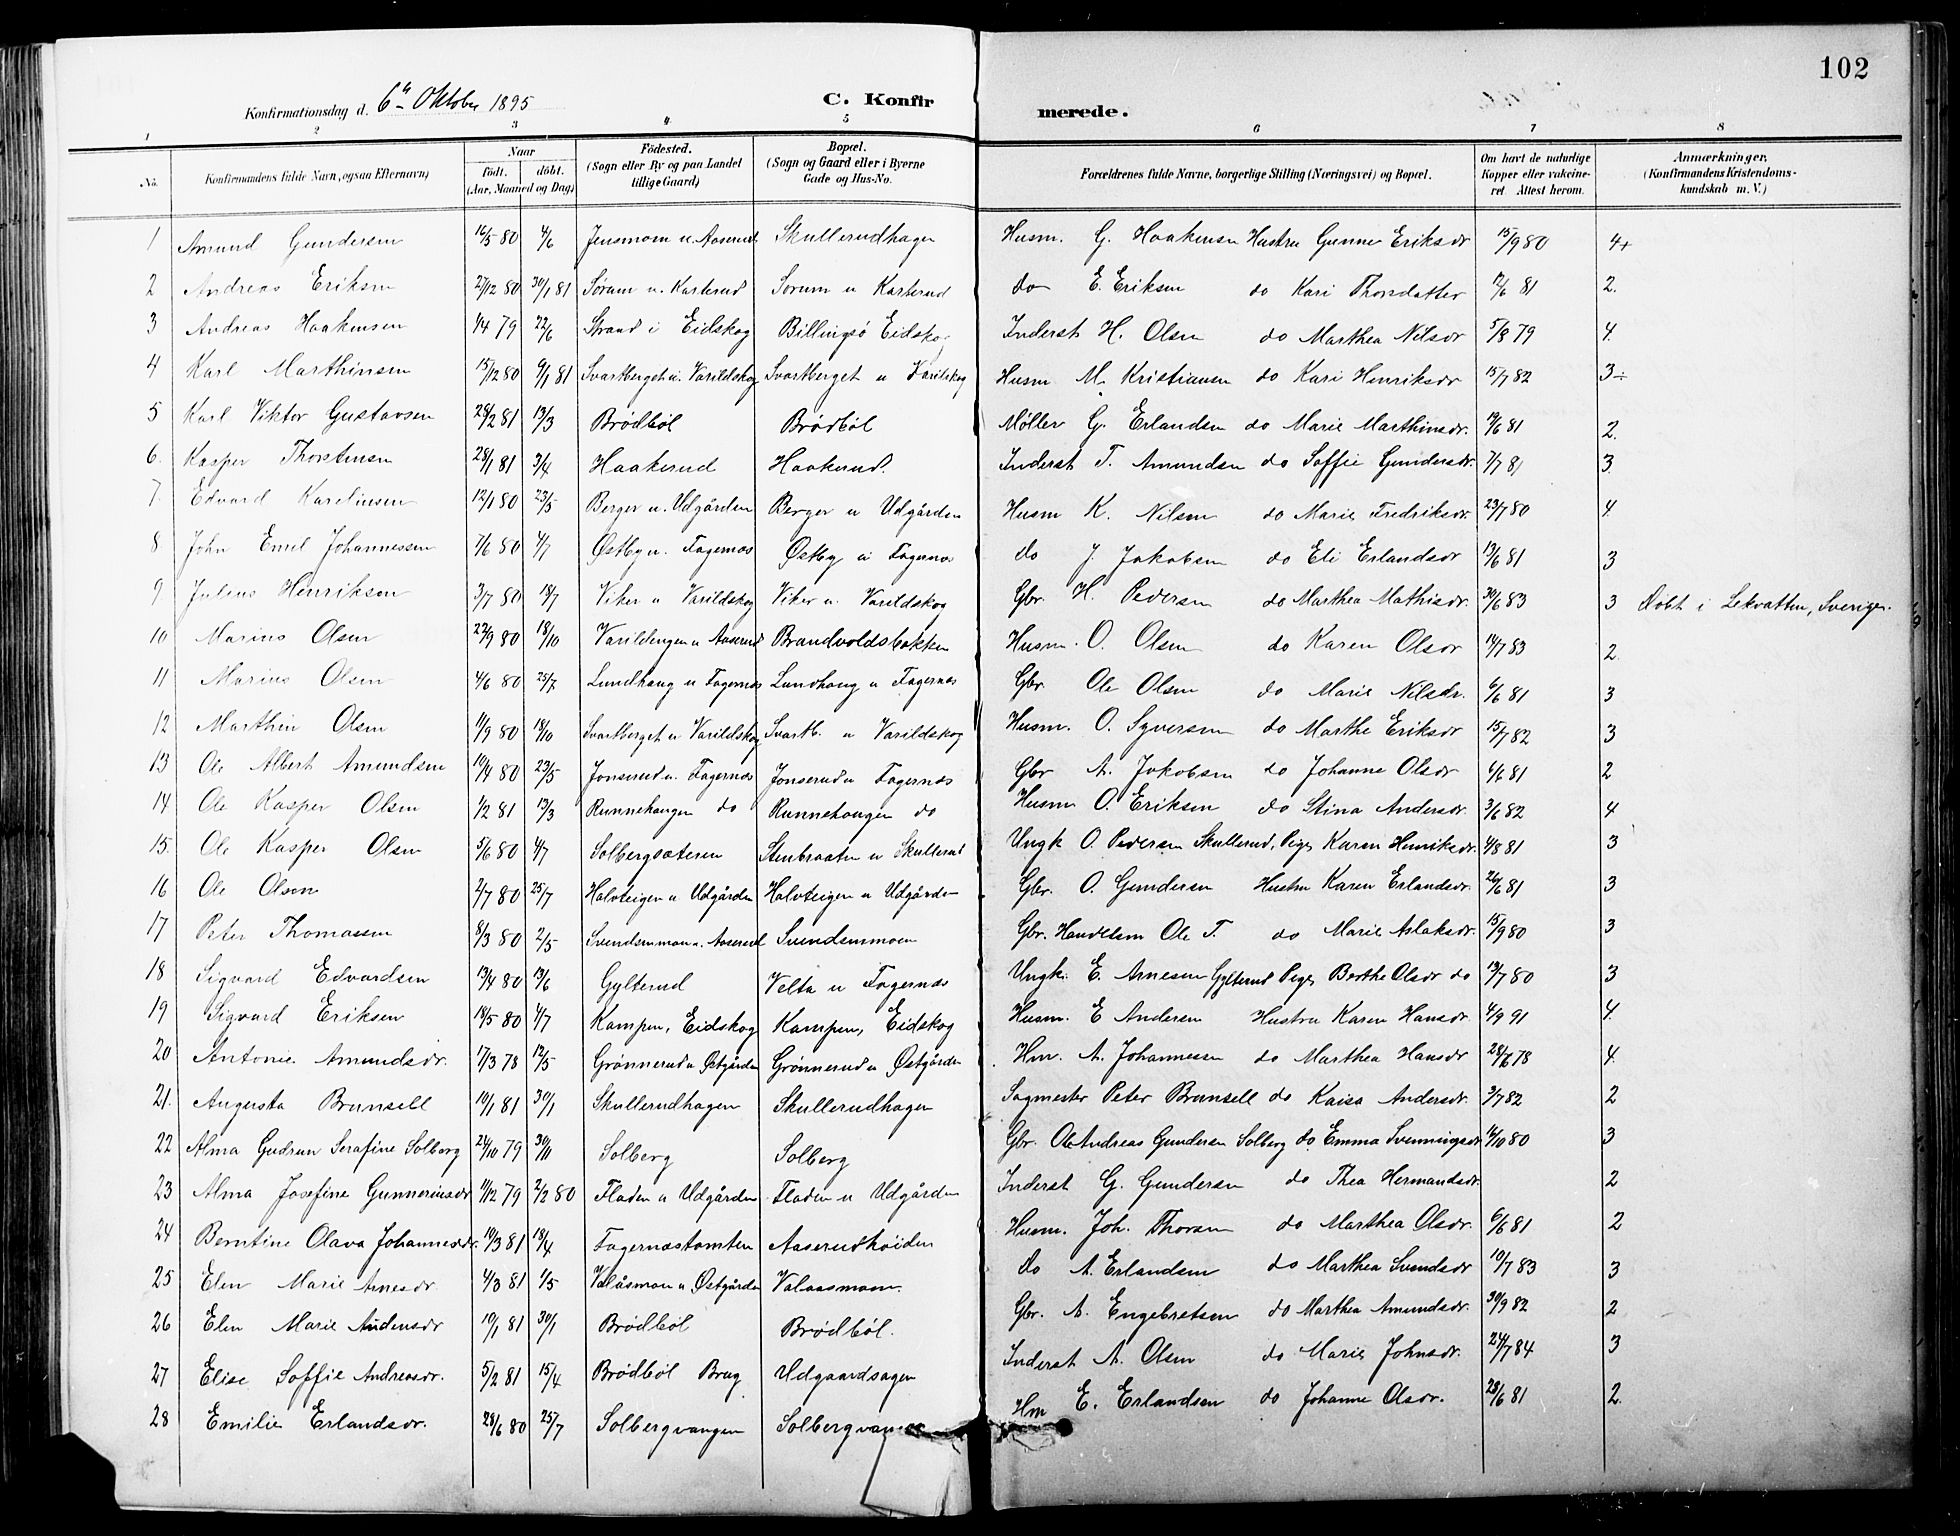 102
Konfirmationsdag d. 6te Oktober 1895 C. Konfirmerede.
1 2 3 4 5 6 7 8
No. Konfirmandens fulde Navn, ogsaa Efternavn) Naar födt. döbt. (Aar, Maaned og Dag) Födested. (Sogn eller By og paa Landet tillige Gaard) Bopæl. (Sogn og Gaard eller i Byerne Gade og Hus-No. Forældrenes fulde Navne, borgerlige Stilling (Næringsvei) og Bopæl. Om havt de naturlige Kopper eller vakcineret. Attest herom. Anmærkninger. (Konfirmandens Kristendomskundskab m. V.)
1 Amund Gundersen 16/5 80 4/6 Jensmoen u. Aaserud Skullerudhagen Husm. G. Haakensen Hustru Gunner Eriksdr 15/9 80 4+
2 Andreas Eriksen 27/12 80 30/1 81 Sørum u. Karterud Sorum u Karterud do E. Eriksen do Kari Thorsdatter 12/6 81 2.
3 Andreas Haakensen 1/4 79 22/6 Strand i Eidskog Billingsö Eidskog Inderst H. Olsen do Marthea Nilsdr 5/8 79 4.
4 Karl Marthinsen 15/12 80 9/1 81 Svartberget u. Varildskog Svartberget u Varildskog Husm M. Kristiansen do Kari Henriksdr 15/7 82 3÷
5 Karl Viktor Gustavsen 28/2 81 13/3 Brödböl Brödböl Møller G. Erlandsen do Marie Marthinsdr. 19/6 81 2.
6. Kasper Thorstensen 28/1 81 3/4 Haakerud Haakerud. Inderst T. Amundsen do Soffie Gundersdr. 7/7 81 3
7. Edvard Karelinsen 12/1 80 23/5 Berger u. Udgården Berger u Udgården Husm K. Nilsen do Marie Fredriksdr. 23/7 80 4.
8 John Emil Johannessen 7/6 80 4/7 Østby u. Fagernæs Østby u Fagernæs do J. Jakobsen do Eli Erlandsdr 13/6 81 3
9 Julius Henriksen 3/7 80 18/7 Viker u Varildskog Viker u. Varildskog Gbr. H. Pedersen do Marthea Mathisdr. 30/6 83 3 Døbt i Lekvatten, Sverige.
10 Marius Olsen 22/9 80 18/10 Varildengen u Aaserud Brandvoldsbakken Husm. O. Olsen do Karen Olsdr 14/7 83 2.
11 Marius Olsen 4/6 80 25/7 Lundhaug u Fagernæs Lundhaug u Fagernæs Gbr. Ole Olsen do Marie Nilsdr. 6/6 81 3
12 Marthin Olsen 11/9 80 18/10 Svartberget u Varildskog Svartb. u Varildskog Husm. O. Syversen do Marthe Eriksdr 15/7 82 3
13 Ole Albert Amundsen 10/4 80 23/5 Jonserud u. Fagernæs Jonserud u Fagernæs Gbr A. Jakobsen do Johanne Olsdr 4/6 81 2
14 Ole Kasper Olsen 1/2 81 13/3 Runnehaugen do Runnehaugen do Husm O. Eriksen do Stina Andersdr. 3/6 82 4
15. Ole Kasper Olsen 5/6 80 4/7 Solbergsæteren Stenbraaten u Skullerud Ungk O. Pedersen Skullerud, Pige Karen Henriksdr. 4/8 81 3
16 Ole Olsen 2/7 80 25/7 Halvteigen u Udgården Halvteigen u Udgården Gbr. O. Gundersen Hustru Karen Erlandsdr. 26/6 81 3
17 Peter Thomassen 8/3 80 2/5 Svendsmoen u. Aaserud Svendsmmoen Gbr. Handelsm Ole T. do Marie Aslaksdr. 15/9 80 3
18 Sigvard Edvardsen 13/4 80 13/6 Gylterud Velta u Fagernæs Ungk. E. Arnesen Gylterud Pige Berthe Olsdr do 13/7 80 3
19 Sigvard Eriksen 18/5 80 4/7 Kampen, Eidskog Kampen, Eidskog Husm. E Andersen Hustru Karen Hansdr. 4/9 91 4.
20 Antonie Amundsdr. 17/3 78 12/5 Grönnerud u Østgården Grönnerud u Østgården Hm. A. Johannessen do Marthea Hansdr 28/6 78 4.
21. Augusta Brunsell 10/1 81 30/1 Skullerudhagen Skullerudhagen Sagmester Peter Brunsell do Kaisa Andersdr. 3/7 82 2
22 Alma Gudrun Serafine Solberg 24/10 79 30/11 Solberg Solberg Gbr. Ole Andreas Gundersen Solberg do Emma Svenningsdr 16/10 80 3
23 Alma Josefine Gunneriusdr 11/12 79 2/2 80 Fladen u Udgården Fladen u Udgården Inderst G. Gundersen do Thea Hermandsdr. 2
24 Berntine Olava Johannesdr. 19/3 81 18/4 Fagernæstomten Aaserudhöiden Husm. Joh. Thorsen do Marthea Olsdr. 6/6 81 2
25 Elen Marie Arnesdr. 4/3 81 1/5 Valåsmoen u Østgården Valaasmoen. do A. Erlandsen do Marthea Svendsdr 10/7 83 3
26 Elen Marie Andersdr 10/1 81 30/1 Brödböl Brödböl. Gbr. A. Engebretsen do Marthea Amundsdr. 30/9 82 2
27 Elise Soffie Andreasdr. 5/2 81 15/4 Brödböl Brug Udgaardsagen Inderst A. Olsen do Marie Johnsdr. 24/7 84 3
28 Emilie Erlandsdr. 28/6 80 25/7 Solbergvangen Solbergvangen Hm E. Erlandsen do Johanne Olsdr. 28/6 81 2.